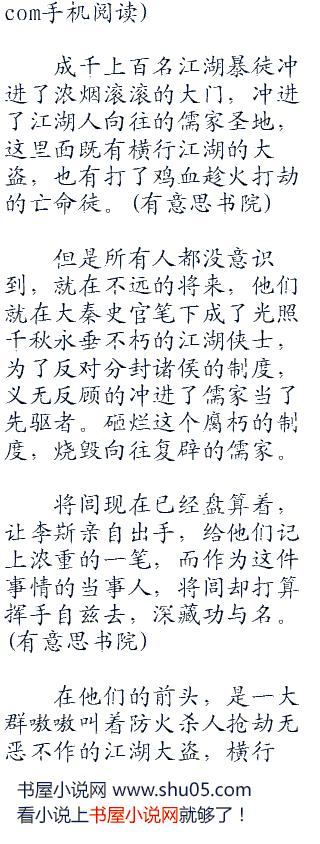 com手机阅读)
成千上百名江湖暴徒冲
进了浓烟滚滚的大门，冲进
了江湖人向往的儒家圣地，
这里面既有横行江湖的大
盗，也有打了鸡血趁火打劫
的亡命徒。(有意思书院)
但是所有人都没意识
到，就在不远的将来，他们
就在大秦史官笔下成了光照
千秋永垂不朽的江湖侠士，
为了反对分封诸侯的制度，
义无反顾的冲进了儒家当了
先驱者。砸烂这个腐朽的制
度，烧毁向往复辟的儒家。
将闾现在已经盘算着，
让李斯亲自出手，给他们记
上浓重的一笔，而作为这件
事情的当事人，将闾却打算
挥手自兹去，深藏功与名。
(有意思书院)
在他们的前头，是一大
群嗷嗷叫着防火杀人抢劫无
恶不作的江湖大盗，横行
书屋小说网 www.shu05.com
看小说上书屋小说网就够了！